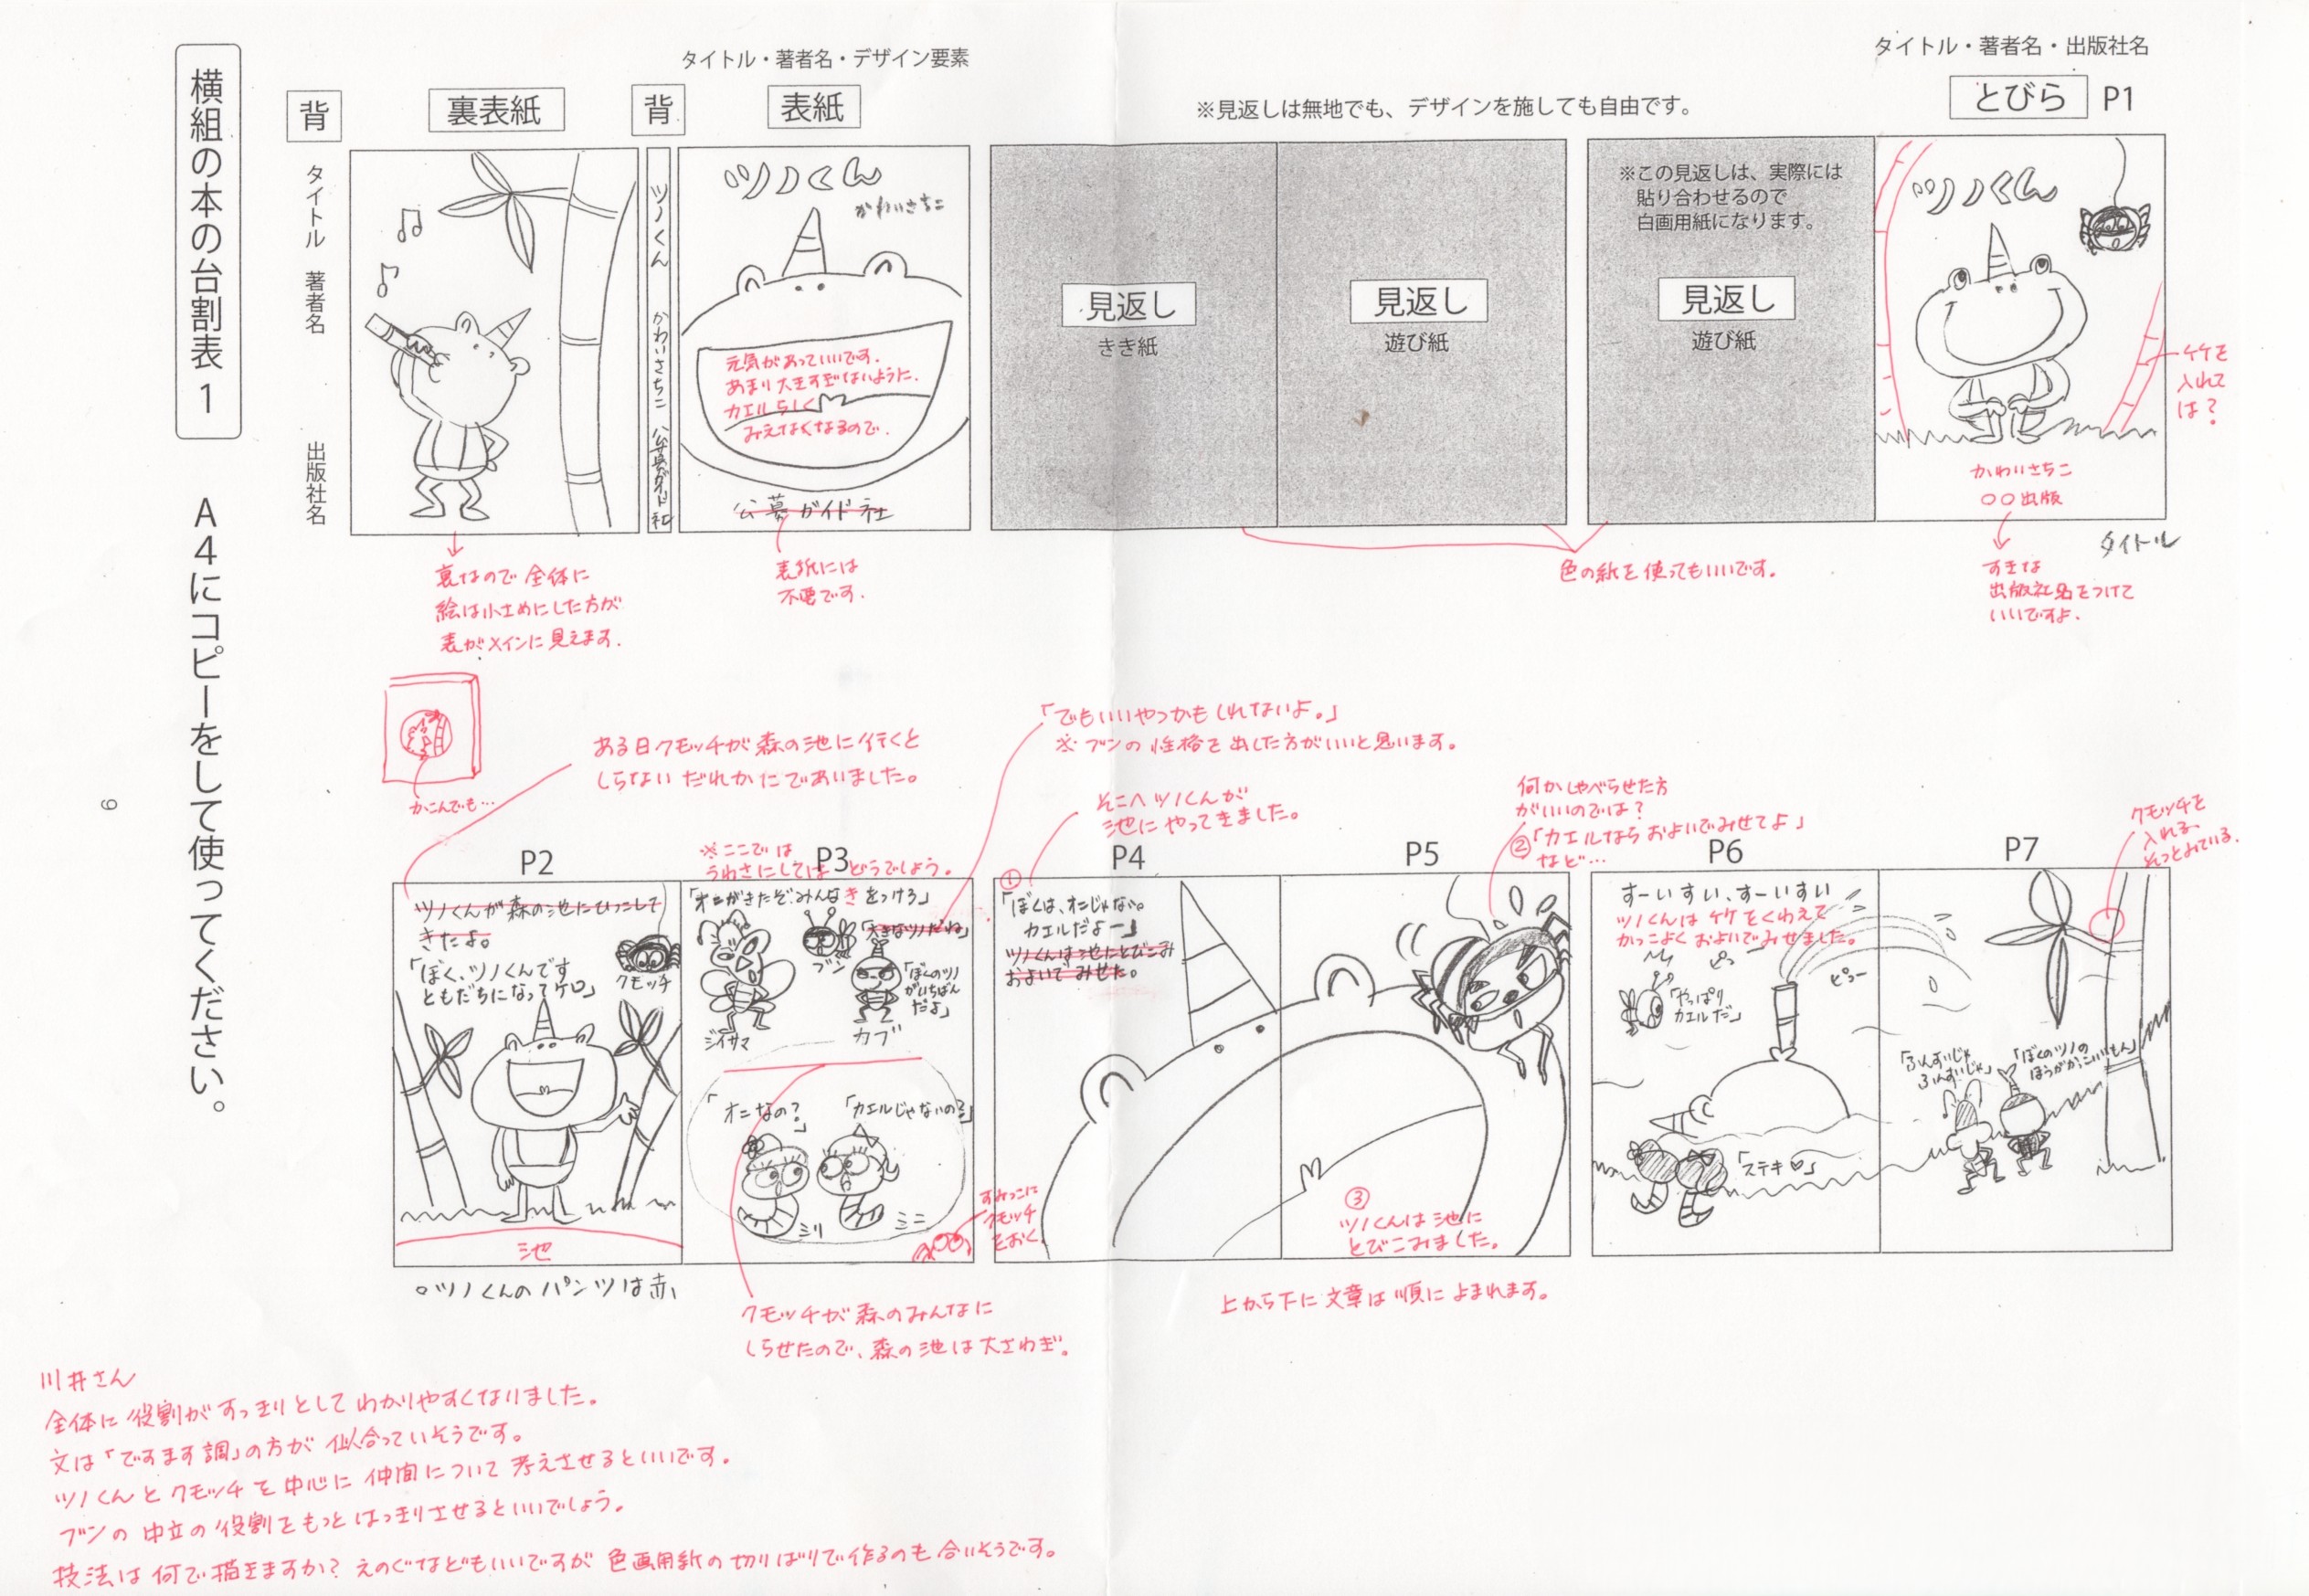 横組の本の台割表 1
A4にコピーをして使ってください。
9
タイトル・著者名・デザイン要素
タイトル・著者名・出版社名
背
裏表紙
背
表紙
※見返しは無地でも、デザインを施しても自由です。
とびら
P1
タイトル
著者名
出版社名
ツノくん
かわいさちこ
公募ガイド社
ツノくん
かわいさちこ
元気があっていいです。
あまり大きすぎないように。
カエルらしく
みえなくなるので。
公募ガイド社
見返し
きき紙
見返し
遊び紙
※この見返しは、実際には
貼り合わせるので
白画用紙になります。
見返し
遊び紙
ツノくん
竹を
入れて
は?
かわいさちこ
○○出版
タイトル
裏なので全体に
絵は小さめにした方が
表がメインに見えます。
表紙には
不要です。
色の紙を使ってもいいです。
すきな
出版社名をつけて
いいですよ。
かこんでも…
ある日クモッチが森の池に行くと
しらないだれかにであいました。
「でもいいやつかもしれないよ。」
※ブンの性格を出した方がいいと思います。
そこへツノくんが
池にやってきました。
何かしゃべらせた方
がいいのでは?
②「カエルならおよいでみせてよ」
など…
クモッチを
入れる、
そっとみている。
※ここでは
うわさにしては どうでしょう。
P2
P3
P4
P5
P6
P7
ツノくんが森の池にひっこして
きたよ。
「ぼく、ツノくんです
ともだちになってケロ」
クモッチ
池
「オニがきたぞ みんな きをつけろ」
「大きなツノだね」
ブン
「ぼくのツノ
がいちばん
だよ」
ジイサマ
カブ
「オニなの?」
「カエルじゃないの?」
ミリ
ミニ
すみっこに
クモッチ
をおく
①
「ぼくは、オニじゃない。
カエルだよー」
ツノくんは池にとびこみ
およいでみせた。
③
ツノくんは池に
とびこみました。
すーいすい、すーいすい
ツノくんは竹をくわえて
かっこよくおよいでみせました。
ピュー
「やっぱり
カエルだ」
「ステキ♡」
「ふんすいじゃ
ふんすいじゃ」
「ぼくのツノの
ほうがかっこいいもん」
○ツノくんのパンツは赤
クモッチが森のみんなに
しらせたので、森の池は大さわぎ。
上から下に文章は順によまれます。
川井さん
全体に役割がすっきりとしてわかりやすくなりました。
文は「ですます調」の方が似合っていそうです。
ツノくんとクモッチを中心に仲間について考えさせるといいです。
ブンの中立の役割をもっとはっきりさせるといいでしょう。
技法は何で描きますか? えのぐなどもいいですが色画用紙の切りばりで作るのも合いそうです。